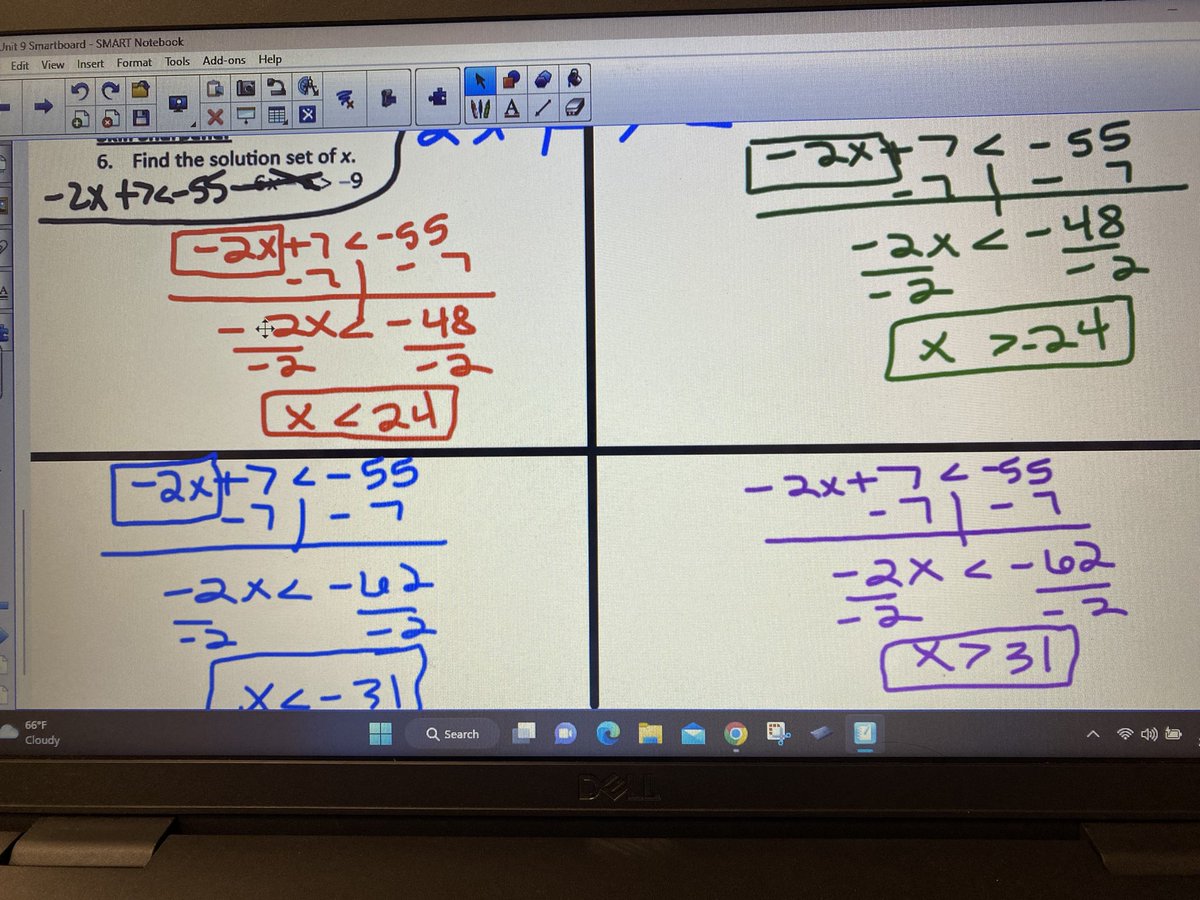 Unit 9 Smartboard - SMART Notebook
Edit View Insert Format Tools Add-ons Help
A
6. Find the solution set of x.
-2x +7<-55
> -9
-2x+7 < -55
-7 | - 7
-2x < -48
-2 -2
x < 24
-2x+7 < -55
-7 | - 7
-2x < -48
-2 -2
x >-24
-2x+7 < -55
-7 | - 7
-2x < -62
-2 -2
x < -31
-2x+7 < -55
-7 | -7
-2x < -62
-2 -2
x > 31
66°F
Cloudy
Search
DELL